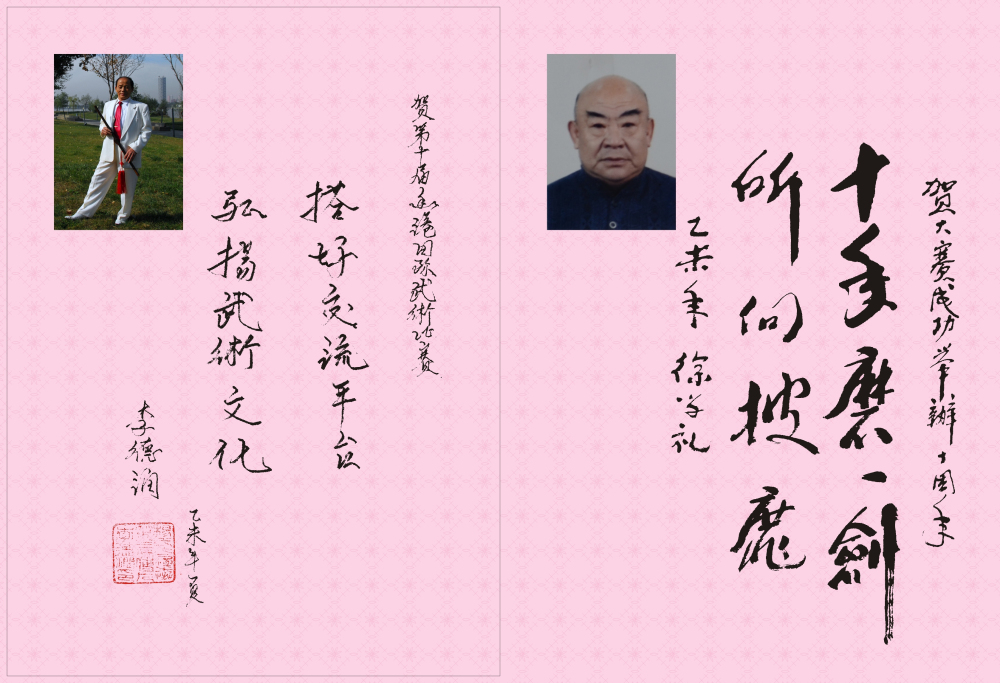 贺大赛成功举辦十周年
十年磨一剑
所向披靡
乙未年 徐学礼
贺第十届香港国际武術比赛
搭好交流平台
弘揚武術文化
乙未年夏
李德润